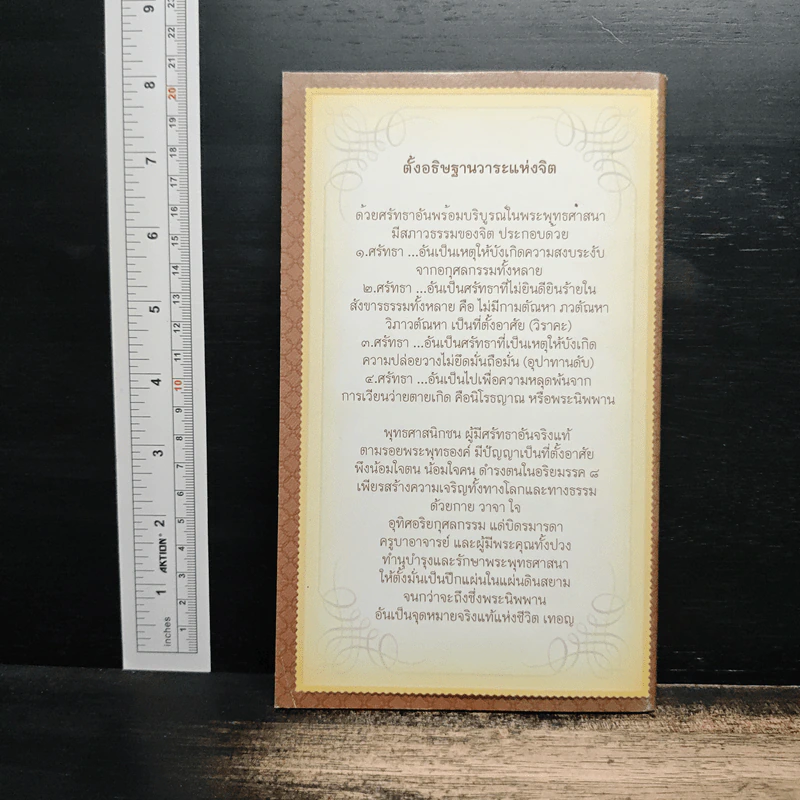 ตั้งอธิษฐานวาระแห่งจิต
ด้วยศรัทธาอันพร้อมบริบูรณ์ในพระพุทธศาสนา
มีสภาวธรรมของจิต ประกอบด้วย
๑.ศรัทธา ...อันเป็นเหตุให้บังเกิดความสงบระงับ
จากอกุศลกรรมทั้งหลาย
๒.ศรัทธา ...อันเป็นศรัทธาที่ไม่ยินดียินร้ายใน
สังขารธรรมทั้งหลาย คือ ไม่มีกามตัณหา ภวตัณหา
วิภาวตัณหา เป็นที่ตั้งอาศัย (วิราคะ)
๓.ศรัทธา ...อันเป็นศรัทธาที่เป็นเหตุให้บังเกิด
ความปล่อยวางไม่ยึดมั่นถือมั่น (อุปาทานดับ)
๔.ศรัทธา ...อันเป็นไปเพื่อความหลุดพ้นจาก
การเวียนว่ายตายเกิด คือนิโรธญาณ หรือพระนิพพาน
พุทธศาสนิกชน ผู้มีศรัทธาอันจริงแท้
ตามรอยพระพุทธองค์ มีปัญญาเป็นที่ตั้งอาศัย
พึงน้อมใจตน น้อมใจคน ดำรงตนในอริยมรรค ๘
เพียรสร้างความเจริญทั้งทางโลกและทางธรรม
ด้วยกาย วาจา ใจ
อุทิศอริยกุศลกรรม แด่บิดรมารดา
ครูบาอาจารย์ และผู้มีพระคุณทั้งปวง
ทำนุบำรุงและรักษาพระพุทธศาสนา
ให้ตั้งมั่นเป็นปึกแผ่นในแผ่นดินสยาม
จนกว่าจะถึงซึ่งพระนิพพาน
อันเป็นจุดหมายจริงแท้แห่งชีวิต เทอญ
inches
1 2 3 4 5 6 7 8 9
AKTION®
1 2 3 4 5 6 7 8 9 10 11 12 13 14 15 16 17 18 19 20 21 22 23